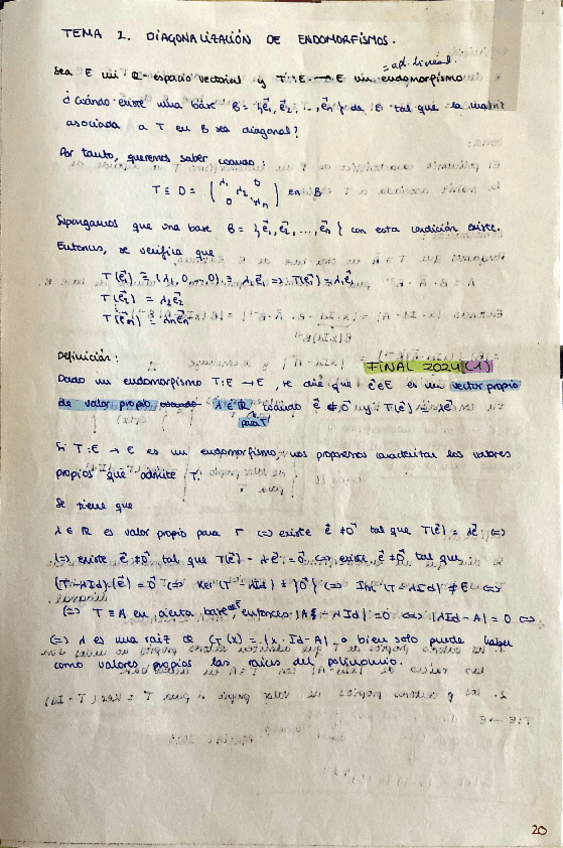 TEMA 2. DIAGONALIZACIÓN DE ENDOMORFISMOS.
= apl. lineal.
Sea E un R-espacio vectorial y T:E → E un endomorfismo
¿Cuándo existe una base B = {e⃗₁, e⃗₂, ..., e⃗ₙ} de E tal que la matriz
asociada a T en B sea diagonal?
Por tanto, queremos saber cuando:
T ≡ D = (λ₁ λ₂ 0 0 λₙ) en B
Supongamos que una base B = {e⃗₁, e⃗₂, ..., e⃗ₙ} con esta condición existe.
Entonces, se verifica que
T(e⃗₁) ≡ (λ₁, 0, ..., 0) ≡ λ₁e⃗₁ => T(e⃗₁) = λ₁e⃗₁
T(e⃗₂) = λ₂e⃗₂
T(e⃗ₙ) = λₙe⃗ₙ
Definición:
FINAL 2024 (1)
Dado un endomorfismo T:E → E, se dice que e⃗∈E es un vector propio
de valor propio λ∈R, cuando e⃗ ≠ 0⃗ y T(e⃗) = λe⃗
para T
Si T:E → E es un endomorfismo, nos proponemos caracterizar los valores
propios que admite T.
Se tiene que
λ ∈ R es valor propio para T <=> existe e⃗ ≠ 0⃗ tal que T(e⃗) = λe⃗ <=>
<=> existe e⃗ ≠ 0⃗, tal que T(e⃗) - λe⃗ = 0⃗ <=> existe e⃗ ≠ 0⃗ tal que
(T-λId)(e⃗) = 0⃗ <=> Ker(T-λId) ≠ {0⃗} <=> Im(T-λId) ≠ E <=>
<=> T ≡ A en cierta base, entonces |A - λId| = 0 <=> |λId - A| = 0 <=>
<=> λ es una raíz de (x) = |x·Id - A|, o bien solo puede haber
como valores propios las raíces del polinomio.
20